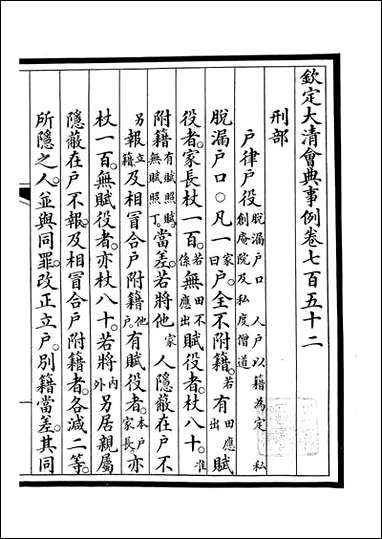 欽定大清會典事例卷七百五十二
刑部
戶律戶役 脫漏戶口 人戶以籍為定 私創庵院及私度僧道
脫漏戶口○凡一家曰戶全不附籍若有田應出賦
役者。家長杖一百。若係無田不應出賦役者。杖八十。准
附籍有賦照賦無賦照丁。當差。若將他家人隱蔽在戶不
另報立籍。及相冒合戶附籍他戶。有賦役者。本戶家長。亦
杖一百。無賦役者。亦杖八十。若將內外另居親屬
隱蔽在戶不報。及相冒合戶附籍者。各減二等。
所隱之人。並與同罪。改正立戶。別籍當差。其同